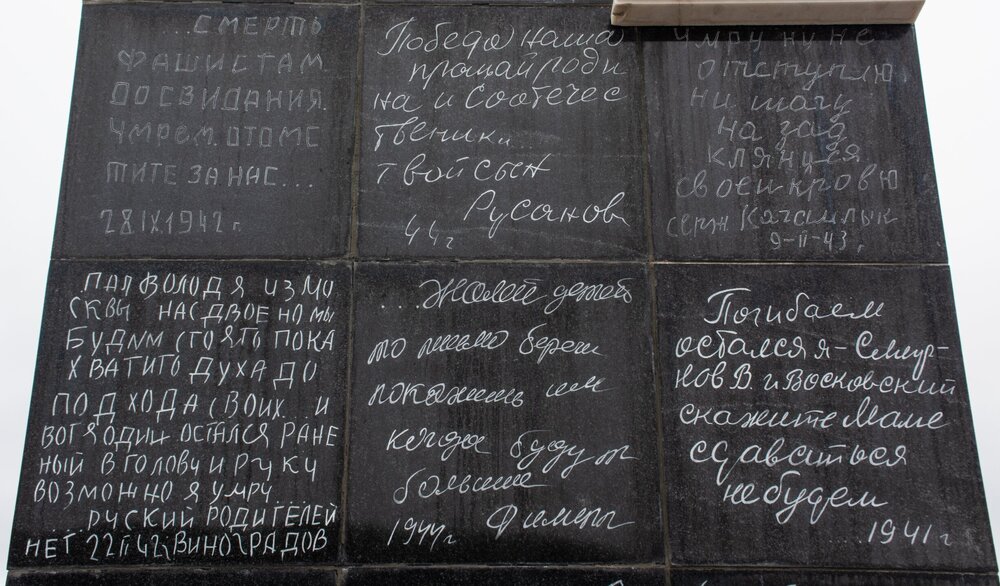 ...СМЕРТЬ
ФАШИСТАМ
ДОСВИДАНИЯ.
УМРЕМ. ОТОМС
ТИТЕ ЗА НАС...
28 IX.1942 г.
Победа наша
прощай роди
на и Соотечес
твеники...
твой сын
Русанов
44 г
Умру ну не
отступлю
ни шагу
на зад
клянуся
своей кровю
серж Кагамлык
9-II-43 г.
ПАЛ ВОЛОДЯ ИЗ МО
СКВЫ НАС ДВОЕ НО МЫ
БУДИМ СТОЯТЬ ПОКА
ХВАТИТ О ДУХА ДО
ПОДХОДА СВОИХ... И
ВОТ Я ОДИН ОСТАЛСЯ РАНЕ
НЫЙ В ГОЛОВУ И РУКУ
ВОЗМОЖНО Я УМРУ....
...РУСКИЙ РОДИТЕЛЕЙ
НЕТ 22 II 42 г ВИНОГРАДОВ
....Жалей детей
то письмо береги
покажишь им
когда будут
большие
1944 г
Погибаем
остался я - Смир-
нов В. и Восковский
скажите Маме
сдаваться
не будем
...1941 г